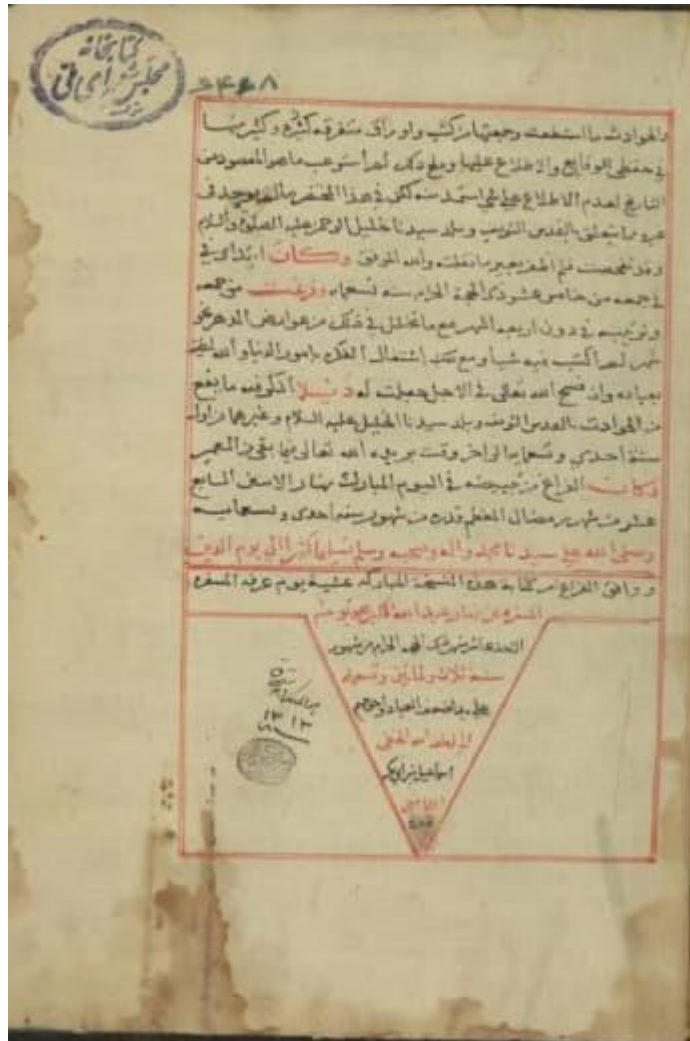 كتابخانه
مجلس شورای ملی
والحوادث ما استطعت وجمعتها من كتب واوراق متفرقة كثيرة وكثير منها
في حفظي الوقايع والاطلاع عليها ومع ذلك لم أستوعب ما هو المقصود من
التاريخ لعدم الاطلاع على شي استمد منه لكن في هذا المختصر ما لم يوجد في
غيره مما يتعلق بالقدس الشريف وبلد سيدنا خليل الرحمن عليه الصلوة والسلام
وقد فحصت فلم اظفر بغير ما نقلته والله الموفق وكان ابتداي في
في جمعه من خامس عشر ذي الحجة الحرام سنة تسعماية وفرغت من جمعه
وترتيبه في دون اربعة اشهر مع ما تخلل في ذلك من عوارض الدهر نحو
شهر لم اكتب فيه شيا ومع تشتت اشتغال الفكر بامور الدنيا والله لطيف
بعباده وان فسح الله تعالى في الاجل جعلت له ذيلا اذكر فيه ما يقع
من الحوادث بالقدس الشريف وبلد سيدنا الخليل عليه السلام وغيرهما من اول
سنة احدى وتسعماية الى اخر وقت يريده الله تعالى فيما بقي من العمر
وكان الفراغ من تبييضه في اليوم المبارك نهار الاسابع
عشر من شهر رمضان المعظم قدره من شهور سنة احدى وتسعماية
وصلى الله على سيدنا محمد واله وصحبه وسلم تسليما كثيرا الى يوم الدين
ووافق الفراغ من كتابة هذه النسخة المباركة عشية يوم عرفة المسفرة
الحجة الحرام من شهور
سنة ثلاث وثمانين وتسعماية
على يد اضعف العباد واحوجهم
الحنفي
اسماعيل
١٣١٣